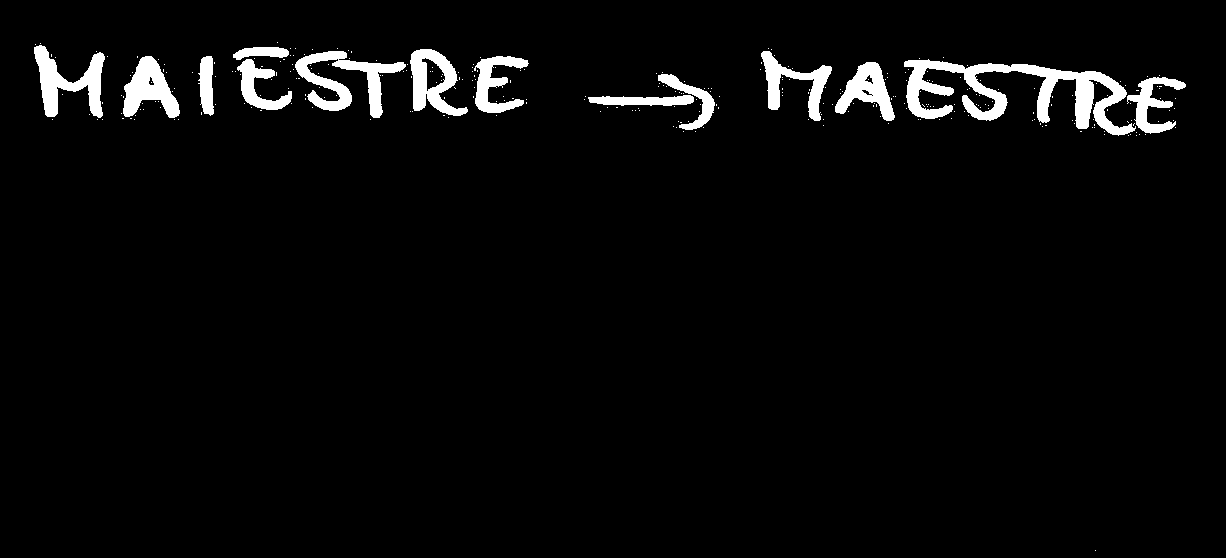 MAIESTRE → MAESTRE